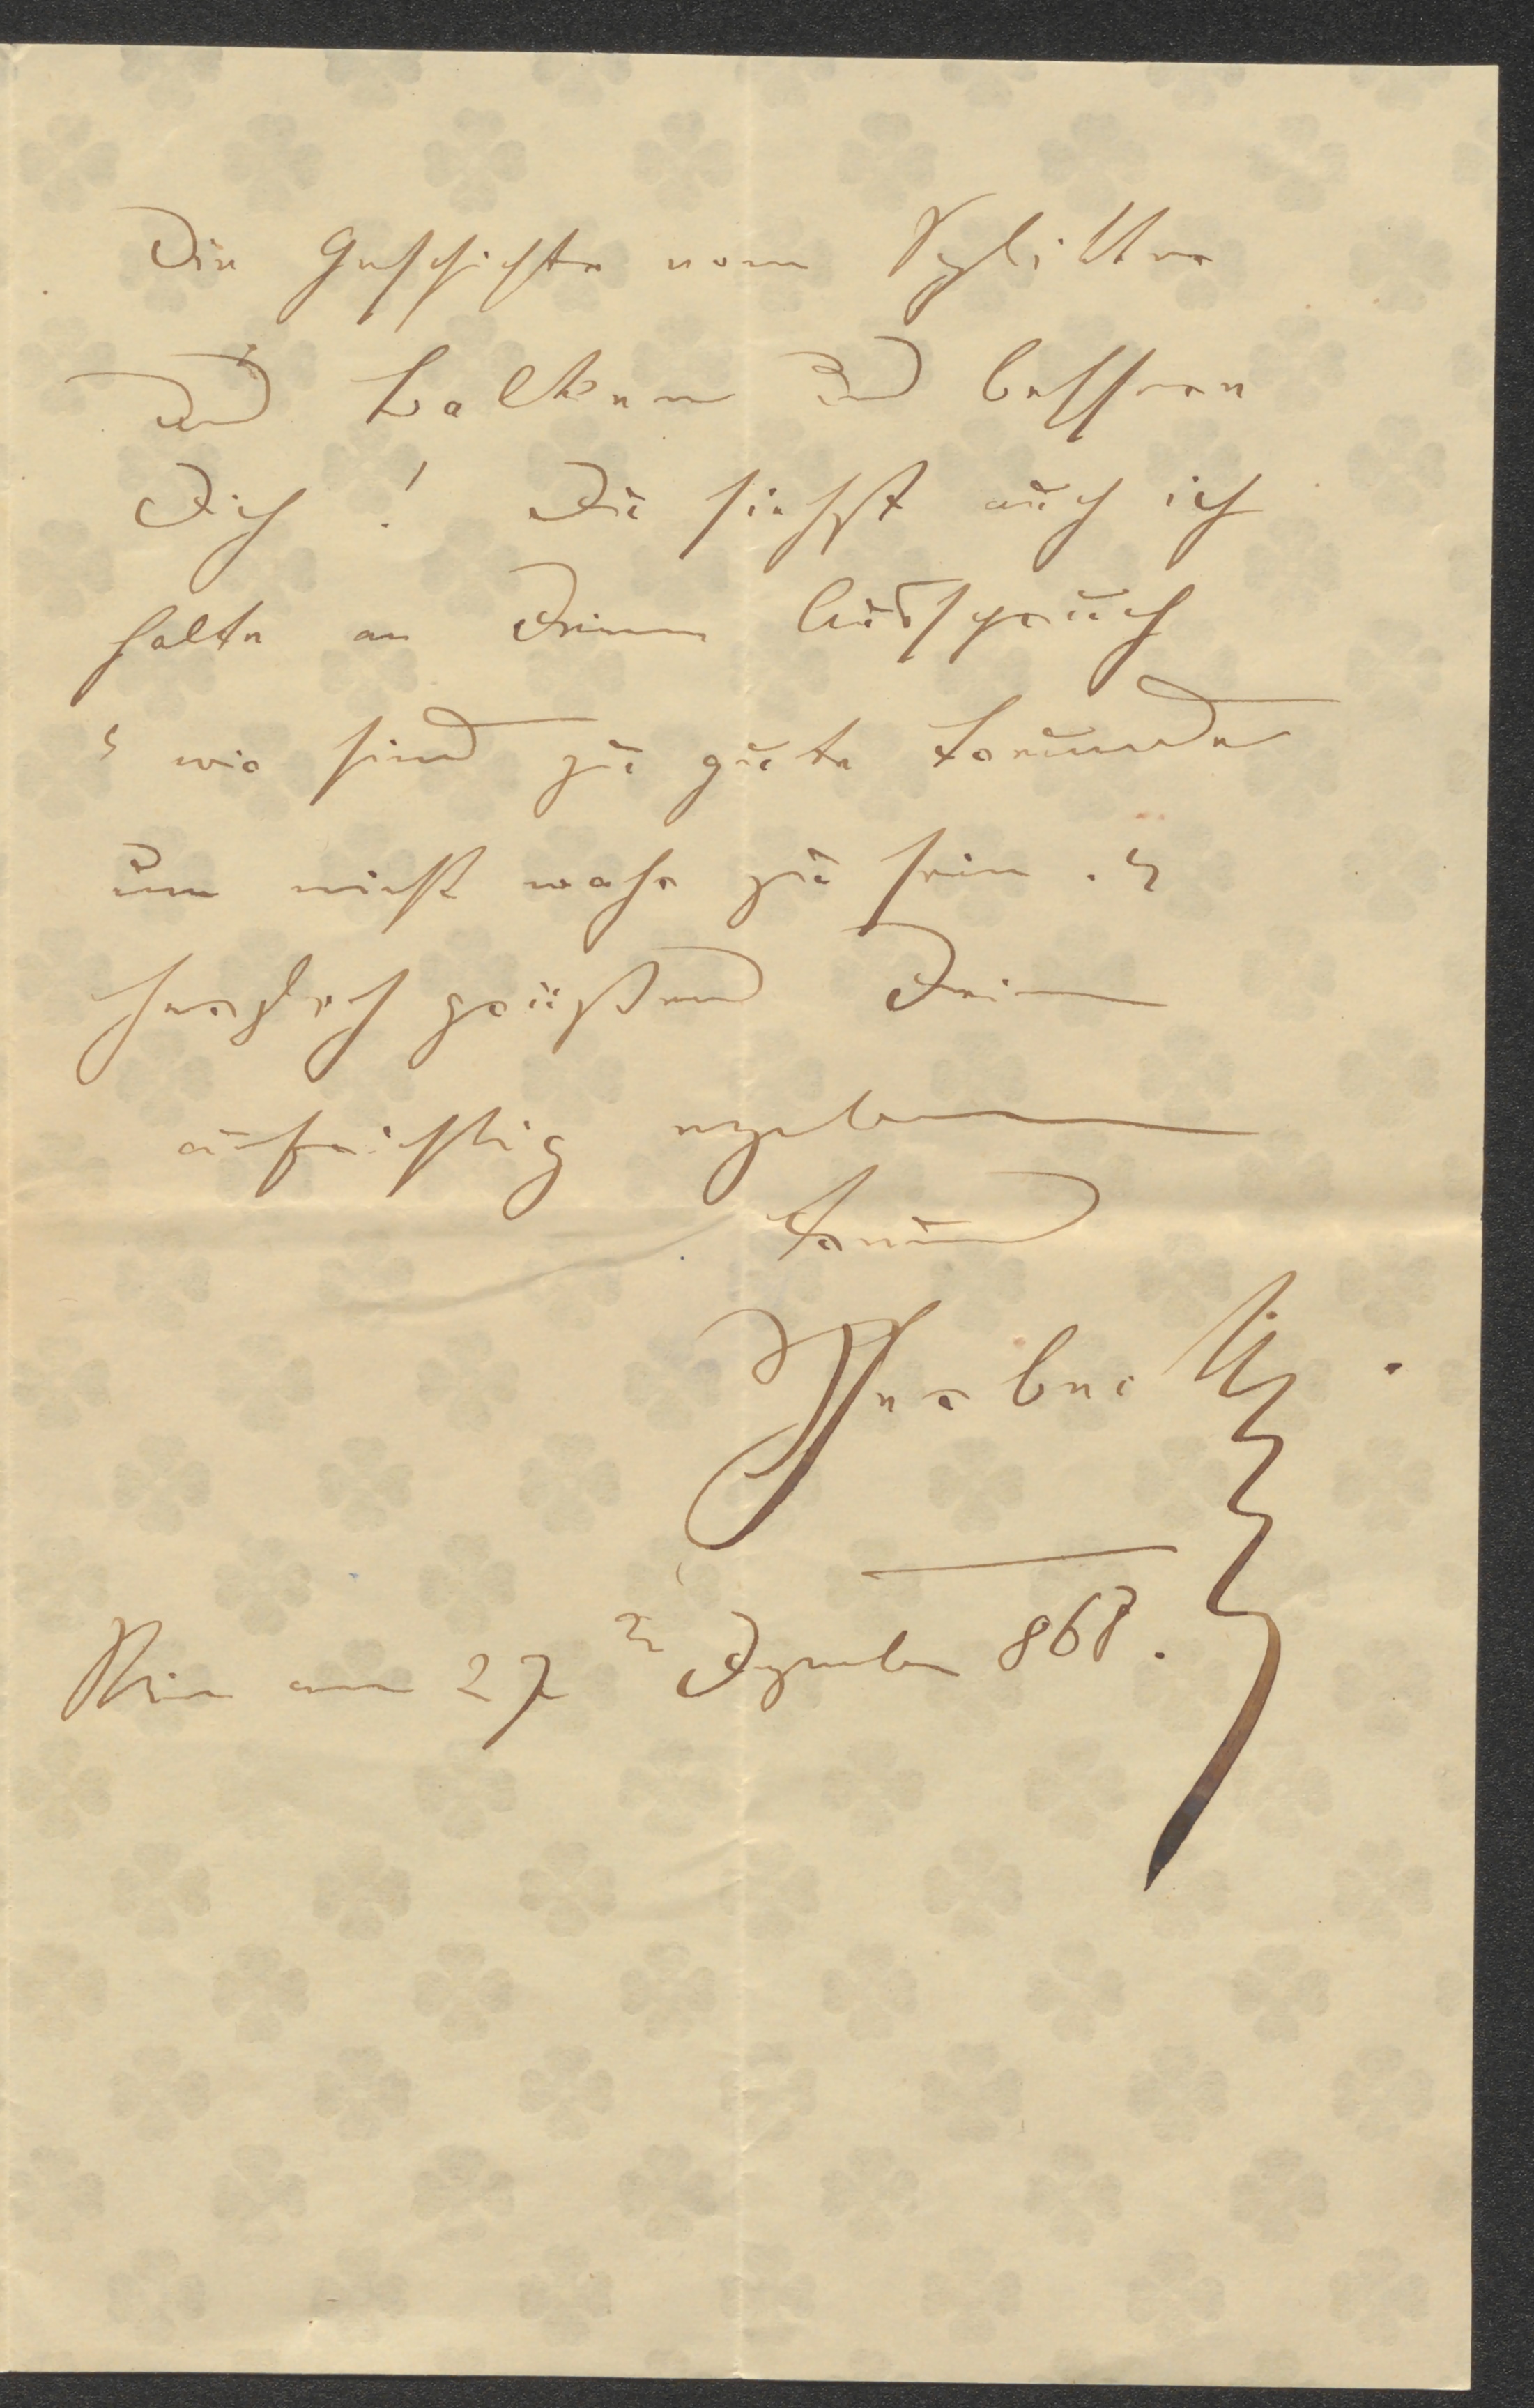 Die Geschichte vom Splitter
und Balken und bessere
Dich! Du siehst auch ich
halte an Deinem Ausspruch
"wir sind zu gute Freunde
um nicht wahr zu sein."
herzlich grüßend Dein
aufrichtig ergebener
Freund
Wien am 27 Dezember 868.